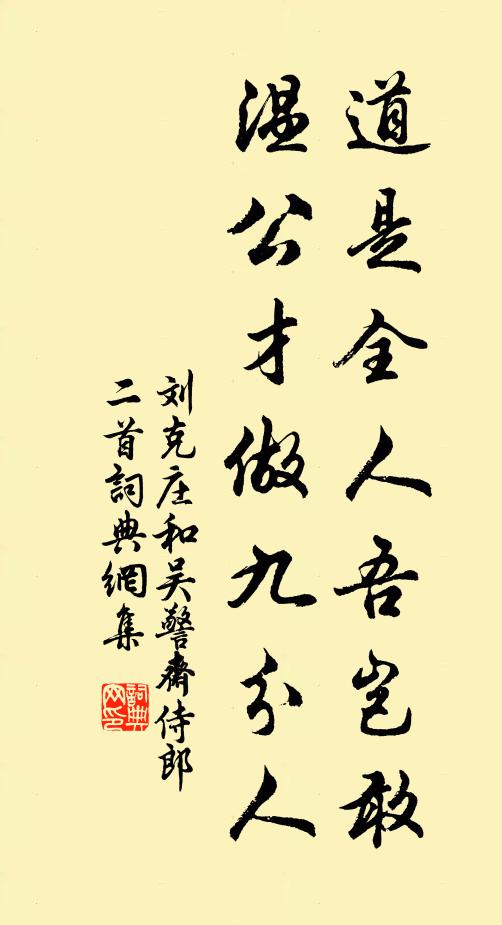 道是全人吾岂敢
温公才做九分人
刘克庄和吴警斋侍郎
二首詞典網集
詞典网印